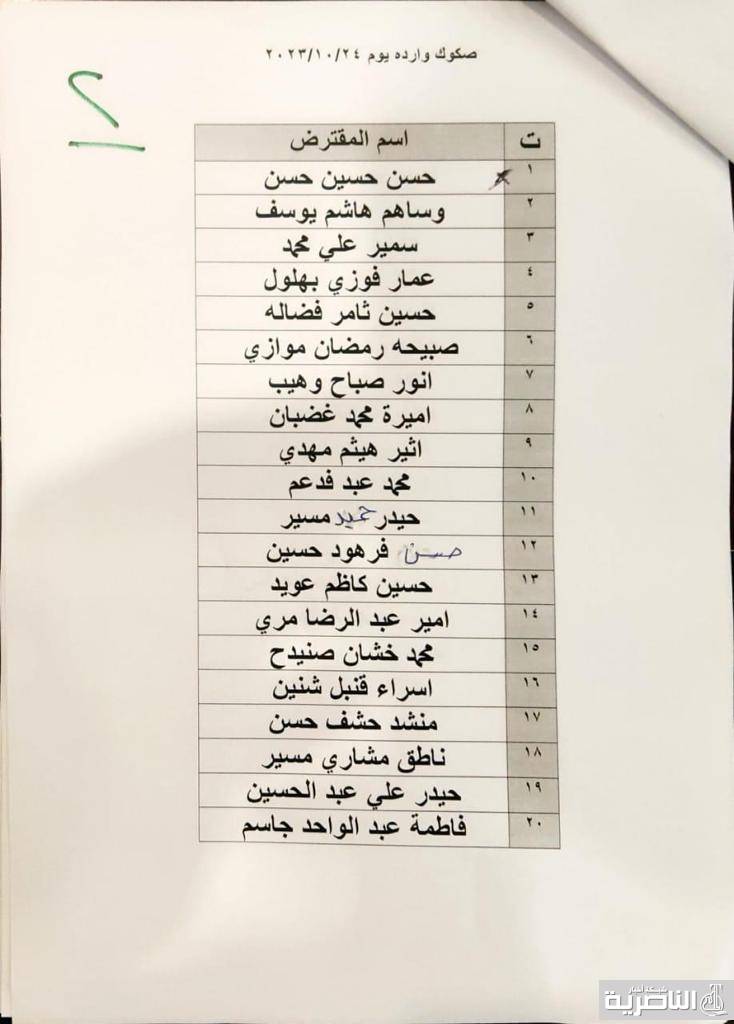 صكوك وارده يوم ٢٠٢٣/١٠/٢٤
٢
ت اسم المقترض
١ حسن حسين حسن
٢ وساهم هاشم يوسف
٣ سمير علي محمد
٤ عمار فوزي بهلول
٥ حسين ثامر فضاله
٦ صبيحه رمضان موازي
٧ انور صباح وهيب
٨ اميرة محمد غضبان
٩ اثير هيثم مهدي
١٠ محمد عبد فدعم
١١ حيدر حميد مسير
١٢ حسن فرهود حسين
١٣ حسين كاظم عويد
١٤ امير عبد الرضا مري
١٥ محمد خشان صنيدح
١٦ اسراء قنبل شنين
١٧ منشد حشف حسن
١٨ ناطق مشاري مسير
١٩ حيدر علي عبد الحسين
٢٠ فاطمة عبد الواحد جاسم
شبكة اخبار
الناصرية